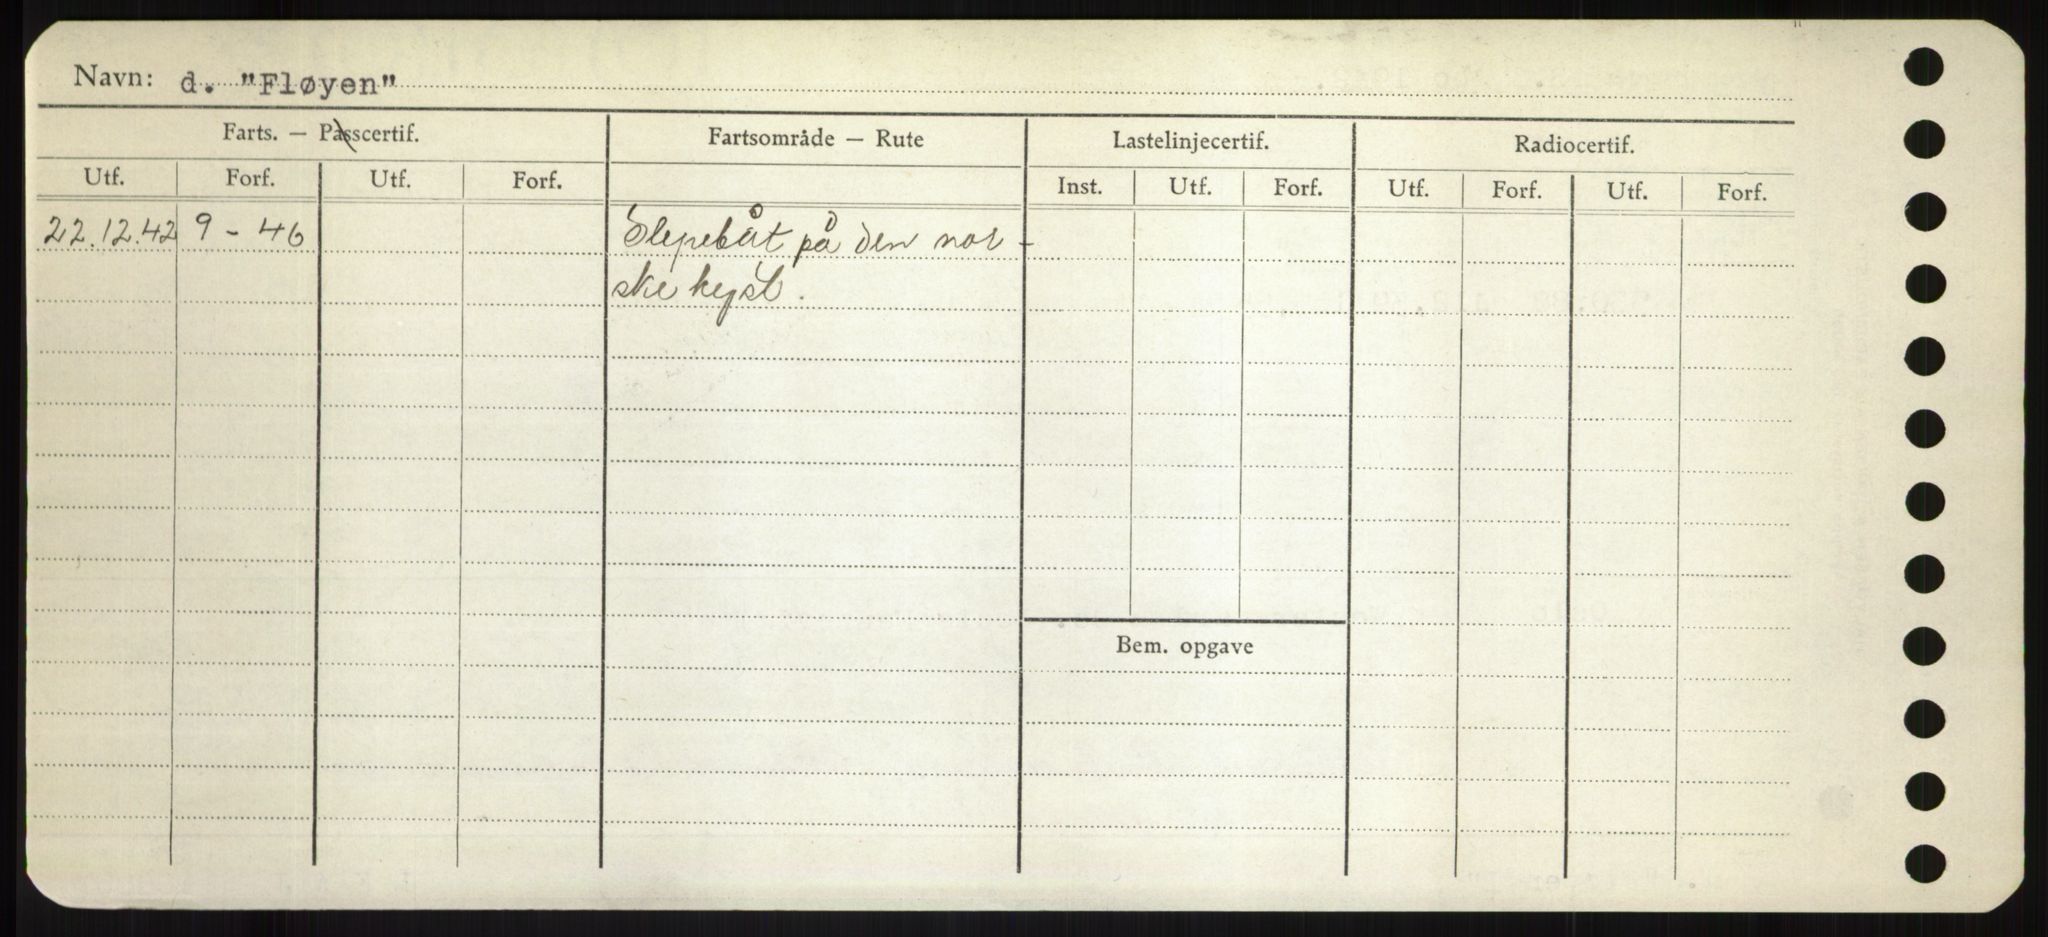 Navn: d. "Fløyen"
Farts. — Passcertif. Fartsområde — Rute Lastelinjecertif. Radiocertif.
Utf. Forf. Utf. Forf. Inst. Utf. Forf. Utf. Forf. Utf. Forf.
22.12.42 9 - 46 Slepebåt på den nor -
ske kyst.
Bem. opgave